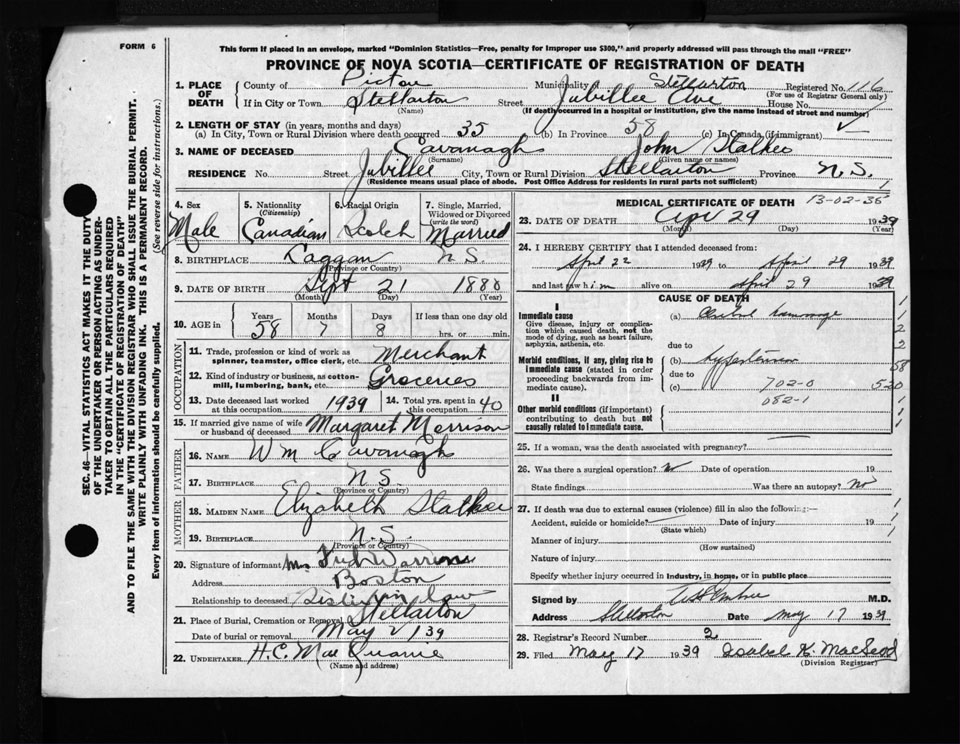 FORM 6
This form if placed in an envelope, marked "Dominion Statistics—Free, penalty for improper use $300," and properly addressed will pass through the mail "FREE"
PROVINCE OF NOVA SCOTIA—CERTIFICATE OF REGISTRATION OF DEATH
1. PLACE OF DEATH County of Pictou Municipality Stellarton Registered No. 116
(For use of Registrar General only)
If in City or Town Stellarton Street Jubillee Ave House No.
(Name) (If death occurred in a hospital or institution, give the name instead of street and number)
2. LENGTH OF STAY (in years, months and days)
(a) In City, Town or Rural Division where death occurred 35 (b) In Province 58 (c) In Canada (if immigrant)
3. NAME OF DECEASED Cavanagh John Stalker
(Surname) (Given name or names)
RESIDENCE No. Street Jubillee City, Town or Rural Division Stellarton Province N.S.
(Residence means usual place of abode. Post Office Address for residents in rural parts not sufficient) 1
4. Sex Male
5. Nationality (Citizenship) Canadian
6. Racial Origin Scotch
7. Single, Married, Widowed or Divorced (write the word) Married
8. BIRTHPLACE N.S.
(Province or Country)
9. DATE OF BIRTH Sept 21 1880
(Month) (Day) (Year)
10. AGE in Years 58 Months 7 Days 8 If less than one day old hrs. or min.
OCCUPATION
11. Trade, profession or kind of work as spinner, teamster, office clerk, etc. Merchant
12. Kind of industry or business, as cotton-mill, lumbering, bank, etc. Groceries
13. Date deceased last worked at this occupation 1939 14. Total yrs. spent in this occupation 40
15. If married give name of wife or husband of deceased Margaret Morrison
FATHER
16. NAME Wm Cavanagh
17. BIRTHPLACE N.S.
(Province or Country)
MOTHER
18. MAIDEN NAME Elizabeth Stalker
19. BIRTHPLACE N.S.
(Province or Country)
20. Signature of informant Mrs
Address Boston
Relationship to deceased Sister in law
21. Place of Burial, Cremation or Removal Stellarton
Date of burial or removal May 2/39
22. UNDERTAKER H.C. MacQuarrie
(Name and address)
MEDICAL CERTIFICATE OF DEATH 13-02-35
23. DATE OF DEATH Apr 29 1939
(Month) (Day) (Year)
24. I HEREBY CERTIFY that I attended deceased from:
April 22 1939 to April 29 1939
and last saw him alive on April 29 1939
CAUSE OF DEATH
I
Immediate cause
Give disease, injury or complication which caused death, not the mode of dying, such as heart failure, asphyxia, asthenia, etc.
(a)
due to
Morbid conditions, if any, giving rise to immediate cause (stated in order proceeding backwards from immediate cause).
(b)
due to
(c) 702-0
II 082-1
Other morbid conditions (if important) contributing to death but not causally related to immediate cause.
1
2
2
58
520
1
1
1
25. If a woman, was the death associated with pregnancy?
26. Was there a surgical operation? No Date of operation 19
State findings Was there an autopsy? No
27. If death was due to external causes (violence) fill in also the following:—
Accident, suicide or homicide Date of injury 19
(State which)
Manner of injury
(How sustained)
Nature of injury
Specify whether injury occurred in industry, in home, or in public place
Signed by M.D.
Address Stellarton Date May 17 1939
28. Registrar's Record Number 2
29. Filed May 17 1939 Isabel K. MacLeod
(Division Registrar)
SEC. 46—VITAL STATISTICS ACT MAKES IT THE DUTY
OF THE UNDERTAKER OR PERSON ACTING AS UNDER-
TAKER TO OBTAIN ALL THE PARTICULARS REQUIRED
IN THE "CERTIFICATE OF REGISTRATION OF DEATH"
AND TO FILE THE SAME WITH THE DIVISION REGISTRAR WHO SHALL ISSUE THE BURIAL PERMIT.
WRITE PLAINLY WITH UNFADING INK. THIS IS A PERMANENT RECORD.
Every item of information should be carefully supplied. (See reverse side for instructions.)